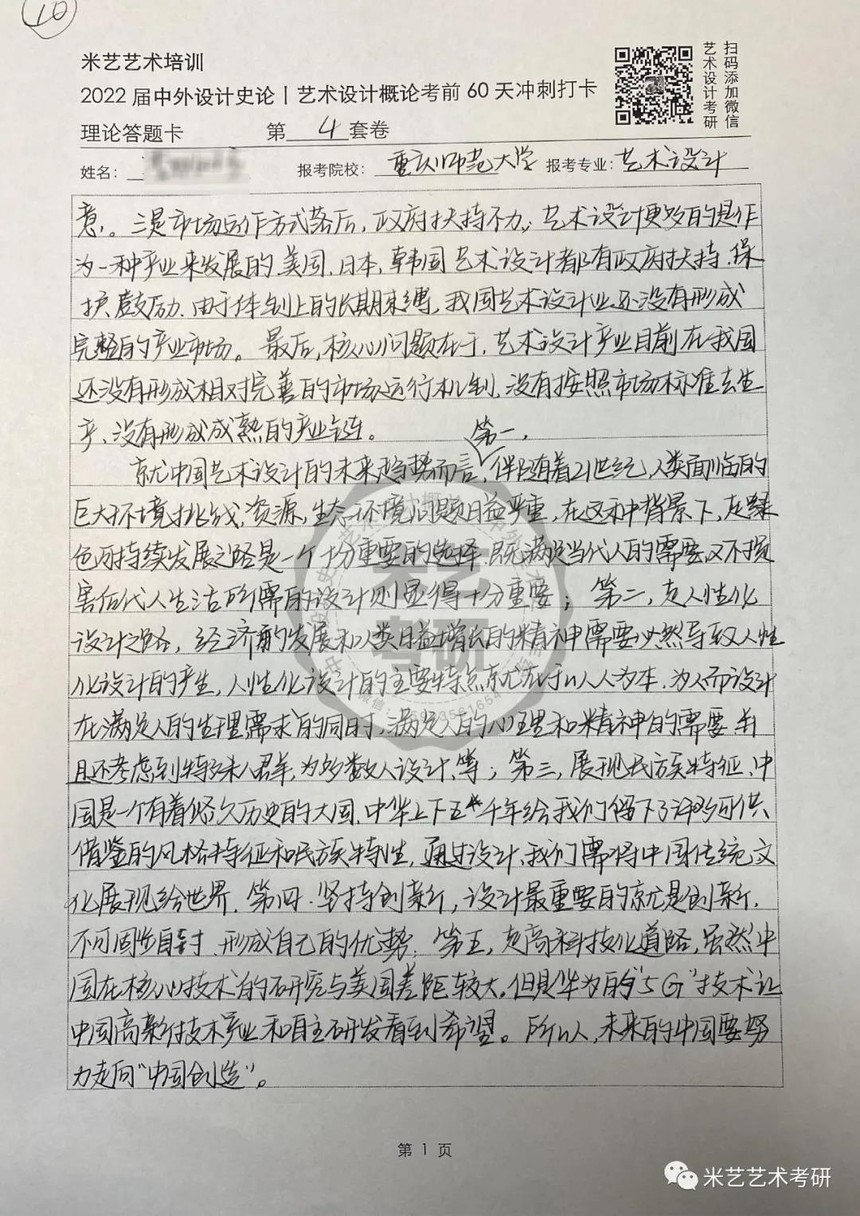 10
米艺艺术培训
扫码添加微信
艺术设计考研
2022届中外设计史论丨艺术设计概论考前60天冲刺打卡
理论答题卡 第 4 套卷
姓名: 报考院校: 重庆师范大学 报考专业: 艺术设计
意,。三是市场运作方式落后,政府扶持不力,艺术设计更多的是作
为一种产业来发展的,美国,日本,韩国艺术设计都有政府扶持,保
护鼓励.由于体制上的长期束缚,我国艺术设计业还没有形成
完整的产业市场。最后,核心问题在于,艺术设计产业目前在我国
还没有形成相对完善的市场运行机制,没有按照市场标准去生
产,没有形成成熟的产业链。
第一,
就中国艺术设计的未来趋势而言,伴随着21世纪,人类面临的
巨大环境挑战,资源,生态环境问题日益严重,在这种背景下,走绿
色可持续发展之路是一个十分重要的选择.既满足当代人的需要又不损
害后代人生活所需的设计则显得十分重要;第二,走人性化
设计之路,经济的发展和人类日益增长的精神需要必然导致人性
化设计的产生,人性化设计的主要特点就在于以人为本,为人而设计
在满足人的生理需求的同时,满足人的心理和精神的需要,并
且还考虑到特殊人群,为多数人设计等;第三,展现民族特征,中
国是一个有着悠久历史的大国,中华上下五千年给我们留下了许多可供
借鉴的风格特征和民族特性,通过设计,我们需将中国传统文
化展现给世界.第四.坚持创新,设计最重要的就是创新,
不可固步自封,形成自己的优势;第五,走高科技化道路,虽然中
国在核心技术的研究与美国差距较大,但是华为的"5G"技术让
中国高新技术产业和自主研发看到希望。所以,未来的中国要努
力走向"中国创造"。
第 1 页
米艺艺术考研
米艺
考研